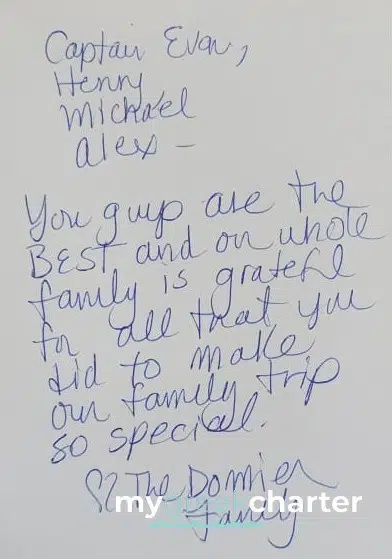 Captain Evan,
Henny
Michael
Alex –
You guys are the
BEST and our whole
family is grateful
for all that you
did to make
our family trip
so special.
♡ The
Family
my charter